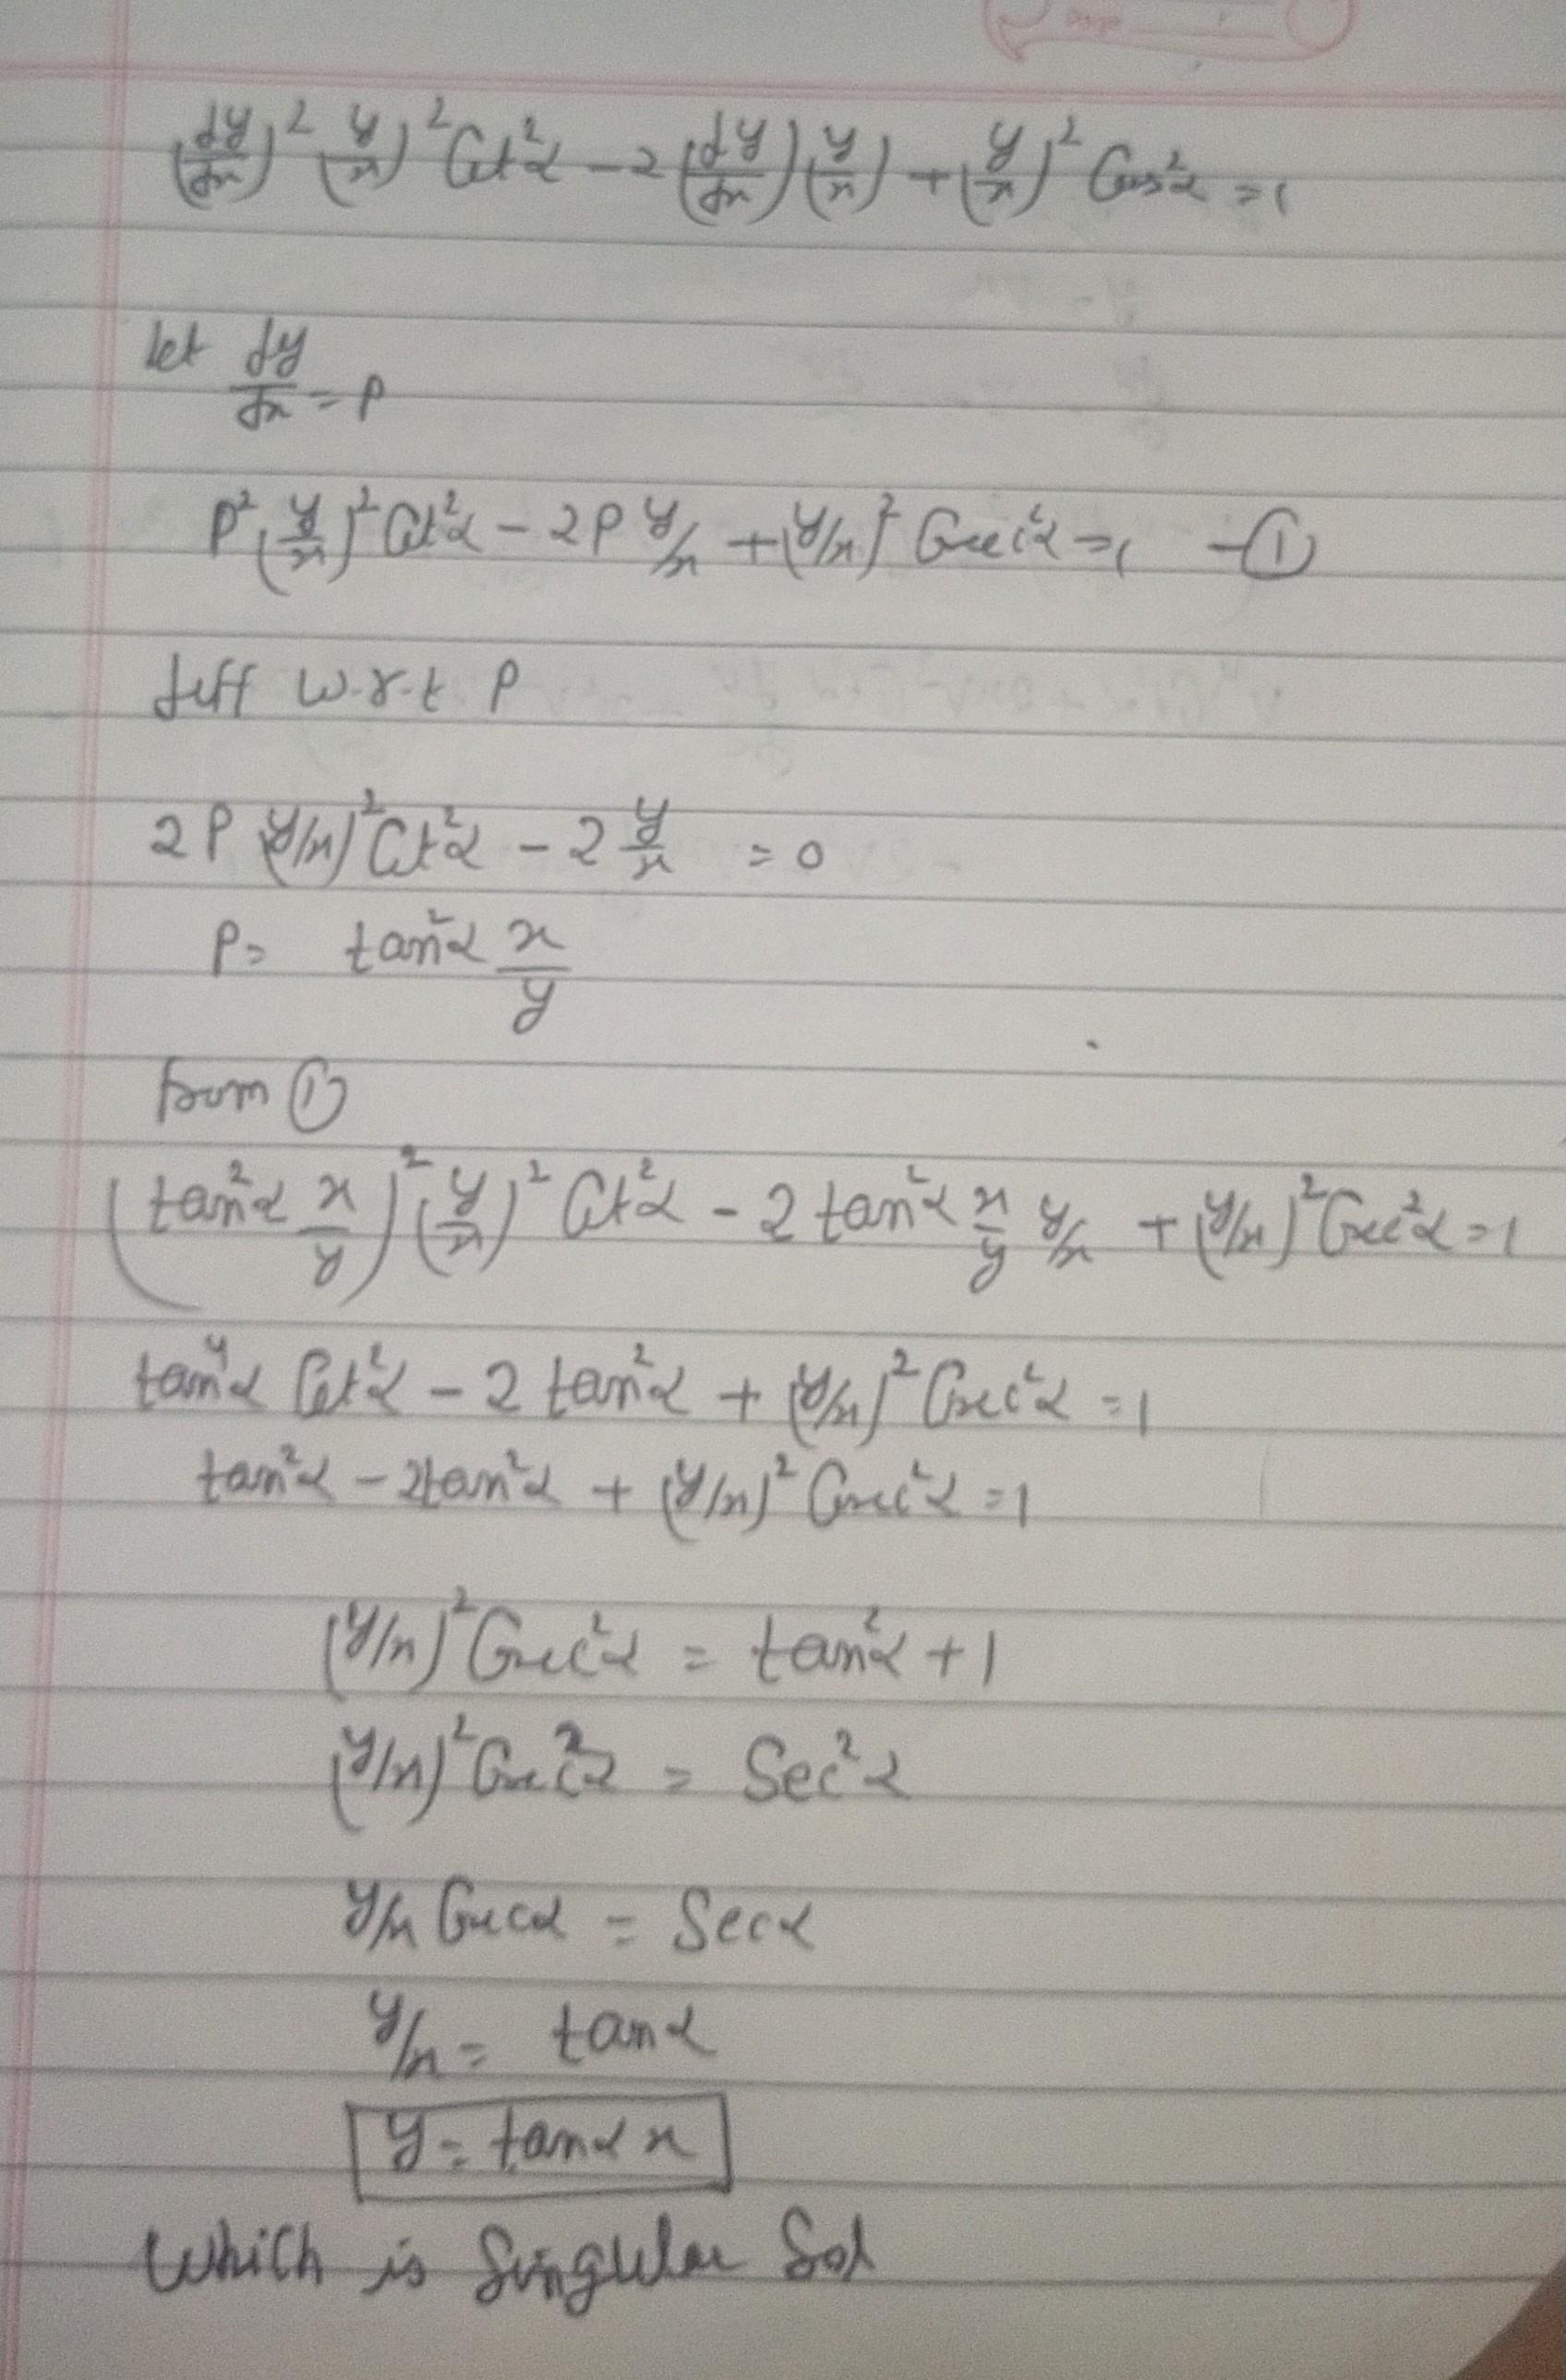 (dy/dx)² (y/x)² Cot²α - 2 (dy/dx) (y/x) + (y/x)² Cos²α = 1
let dy/dx = P
P² (y/x)² Cot²α - 2P y/x + (y/x)² Cosec²α = 1 - ①
diff w.r.t P
2P (y/x)² Cot²α - 2 y/x = 0
P = tan²α x/y
from ①
(tan²α x/y)² (y/x)² Cot²α - 2 tan²α x/y y/x + (y/x)² Cosec²α = 1
tan⁴α Cot²α - 2 tan²α + (y/x)² Cosec²α = 1
tan²α - 2tan²α + (y/x)² Cosec²α = 1
(y/x)² Cosec²α = tan²α + 1
(y/x)² Cosec²α = Sec²α
y/x Cosecα = Secα
y/x = tanα
y = tanα x
Which is Singular Sol